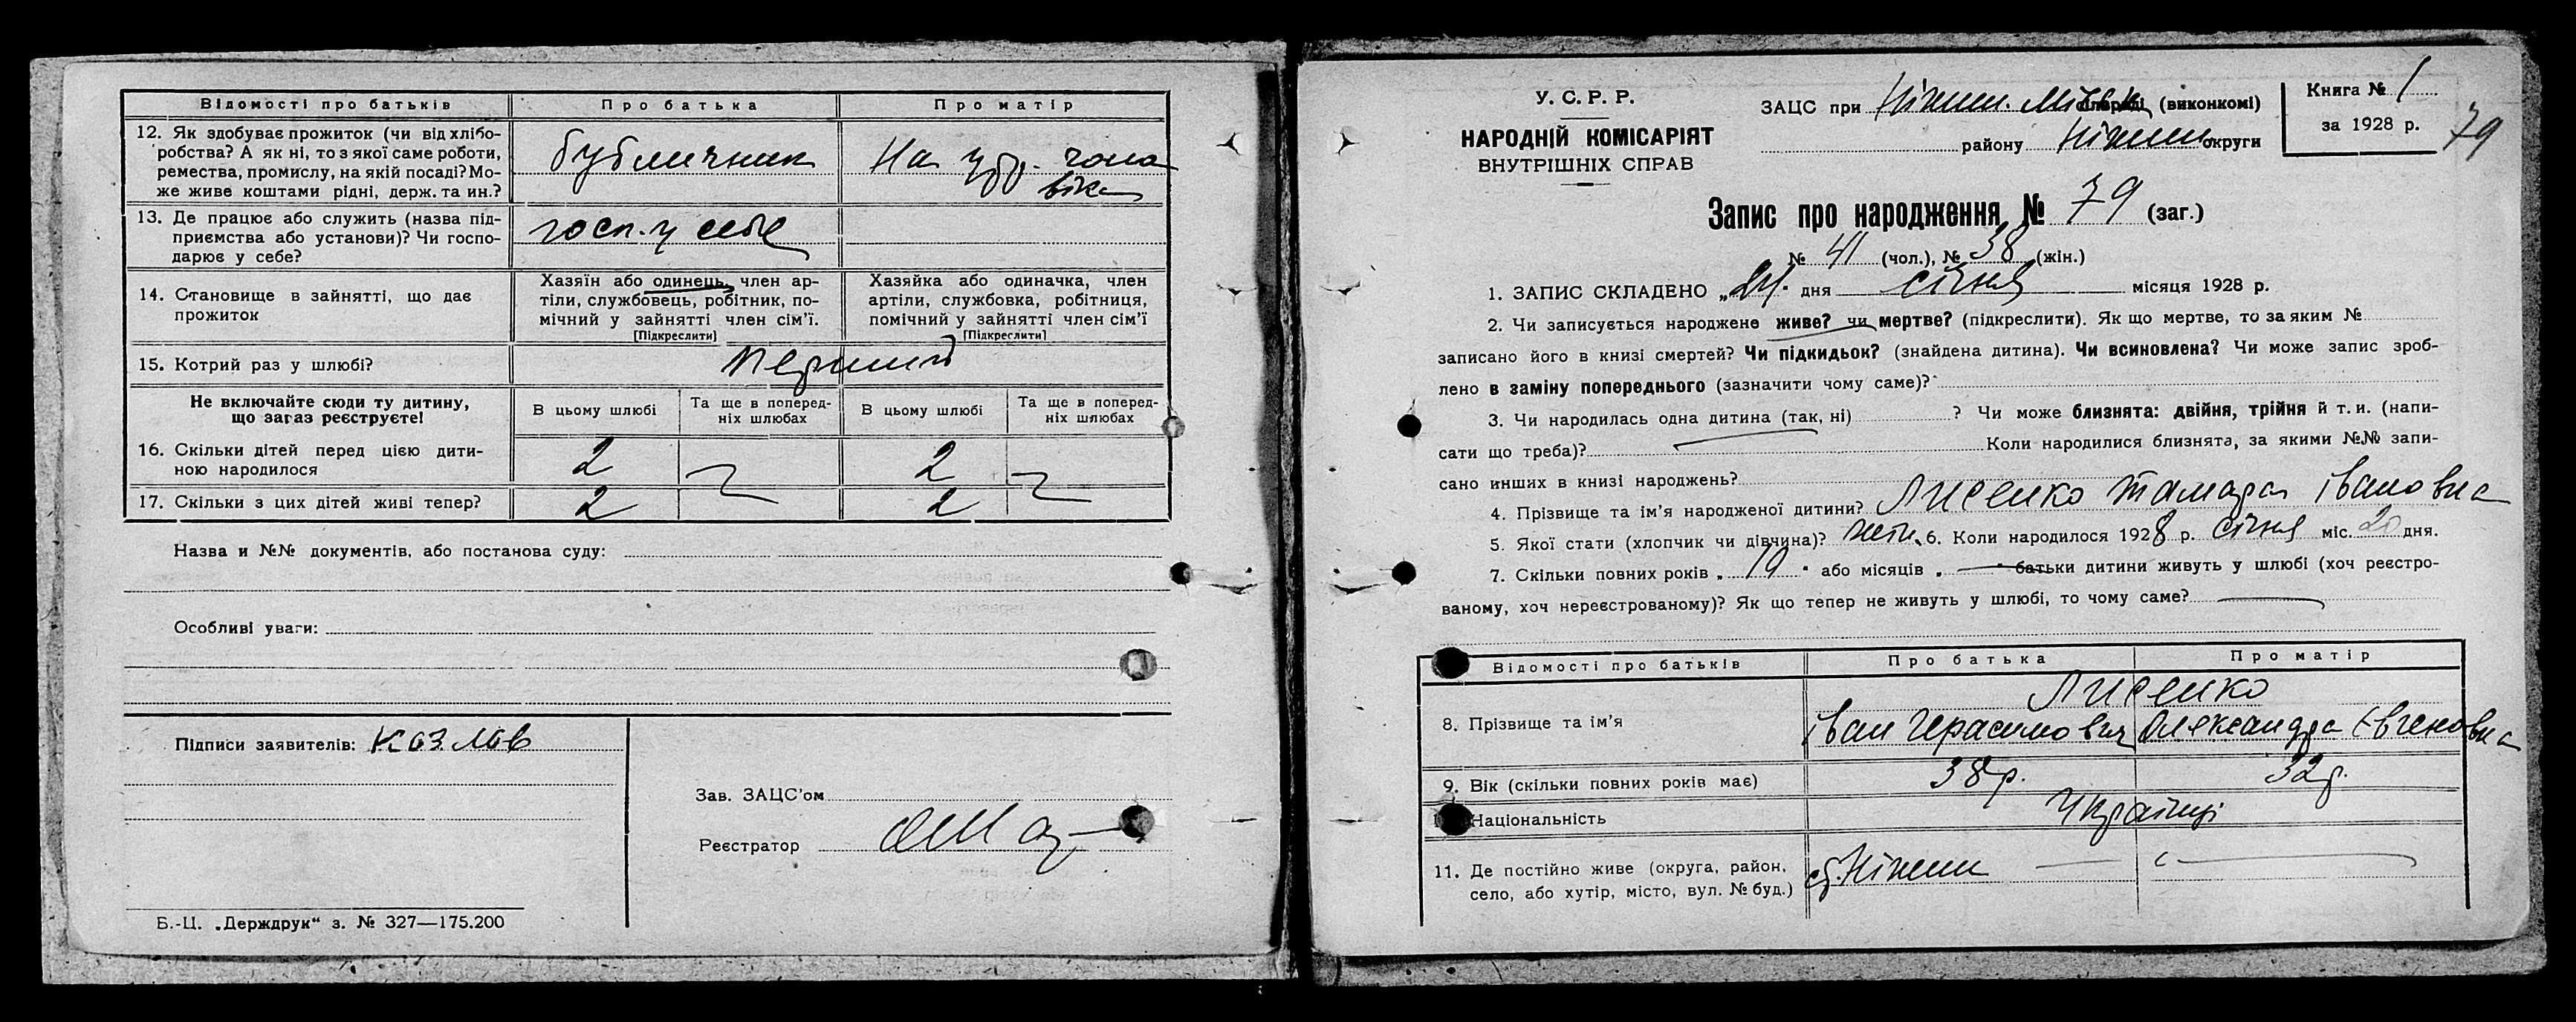 Відомості про батьків Про батька Про матір
12. Як здобуває прожиток (чи від хлібо-
робства? А як ні, то з якої саме роботи,
ремества, промислу, на якій посаді? Мо-
же живе коштами рідні, держ. та ин.?
бубличник
На удр. чола
віка
13. Де працює або служить (назва під-
приємства або установи)? Чи госпо-
дарює у себе?
госп. у себе
14. Становище в зайнятті, що дає
прожиток
Хазяїн або одинець, член ар-
тіли, службовець, робітник, по-
мічний у зайнятті член сім'ї.
[Підкреслити]
Хазяйка або одиначка, член
артіли, службовка, робітниця,
помічний у зайнятті член сім'ї
[Підкреслити]
15. Котрий раз у шлюбі? перший
Не включайте сюди ту дитину,
що зараз реєструєте!
В цьому шлюбі
Та ще в поперед-
ніх шлюбах
В цьому шлюбі
Та ще в поперед-
ніх шлюбах
16. Скільки дітей перед цією дити-
ною народилося
2 2
17. Скільки з цих дітей живі тепер? 2 2
Назва и №№ документів, або постанова суду:
Особливі уваги:
Підписи заявителів: Козлов
Зав. ЗАЦС'ом
Реєстратор
Б.-Ц. „Держдрук“ з. № 327—175.200
У. С. Р. Р.
НАРОДНІЙ КОМІСАРІЯТ
ВНУТРІШНІХ СПРАВ
ЗАЦС при Ніжин. Міськ сільраді (виконкомі)
району Ніжин округи
Книга № 1
за 1928 р.
79
Запис про народження № 79 (заг.)
№ 41 (чол.), № 38 (жін.)
1. ЗАПИС СКЛАДЕНО „24" дня січня місяця 1928 р.
2. Чи записується народжене живе? чи мертве? (підкреслити). Як що мертве, то за яким №
записано його в книзі смертей? Чи підкидьок? (знайдена дитина). Чи всиновлена? Чи може запис зроб-
лено в заміну попереднього (зазначити чому саме)?
3. Чи народилась одна дитина (так, ні) ? Чи може близнята: двійня, трійня й т. и. (напи-
сати що треба)? Коли народилися близнята, за якими №№ запи-
сано инших в книзі народжень?
4. Прізвище та ім'я народженої дитини? Лисенко Тамара Івановна
5. Якої стати (хлопчик чи дівчина)? жін. 6. Коли народилося 1928 р. січня міс. 20 дня.
7. Скільки повних років „ 10 " або місяців „ — " батьки дитини живуть у шлюбі (хоч реєстро-
ваному, хоч нереєстрованому)? Як що тепер не живуть у шлюбі, то чому саме? —
Відомості про батьків Про батька Про матір
Лисенко
8. Прізвище та ім'я Іван Герасимович Олександра Євгеновна
9. Вік (скільки повних років має) 38 р. 32 р.
Національність Українці
11. Де постійно живе (округа, район,
село, або хутір, місто, вул. № буд.)
Ніжин — —